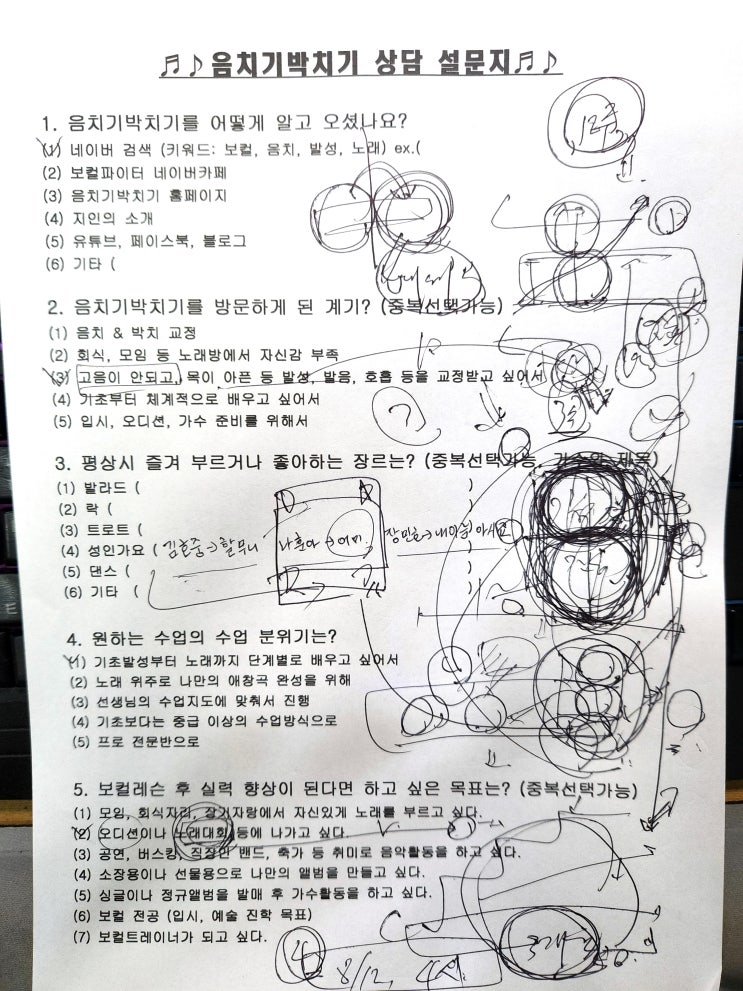 음치기박치기 상담 설문지
1. 음치기박치기를 어떻게 알고 오셨나요?
(1) 네이버 검색 (키워드: 보컬, 음치, 발성, 노래) ex.(
(2) 보컬파이터 네이버카페
(3) 음치기박치기 홈페이지
(4) 지인의 소개
(5) 유튜브, 페이스북, 블로그
(6) 기타 (
2. 음치기박치기를 방문하게 된 계기? (중복선택가능)
(1) 음치 & 박치 교정
(2) 회식, 모임 등 노래방에서 자신감 부족
(3) 고음이 안되고, 목이 아픈 등 발성, 발음, 호흡 등을 교정받고 싶어서
(4) 기초부터 체계적으로 배우고 싶어서
(5) 입시, 오디션, 가수 준비를 위해서
3. 평상시 즐겨 부르거나 좋아하는 장르는? (중복선택가능, 가수와 제목)
(1) 발라드 ( )
(2) 락 ( )
(3) 트로트 ( )
(4) 성인가요 ( 김호중→할무니 나훈아→어매 장민호→내이름 아시죠
(5) 댄스 ( )
(6) 기타 ( )
4. 원하는 수업의 수업 분위기는?
(1) 기초발성부터 노래까지 단계별로 배우고 싶어서
(2) 노래 위주로 나만의 애창곡 완성을 위해
(3) 선생님의 수업지도에 맞춰서 진행
(4) 기초보다는 중급 이상의 수업방식으로
(5) 프로 전문반으로
5. 보컬레슨 후 실력 향상이 된다면 하고 싶은 목표는? (중복선택가능)
(1) 모임, 회식자리, 장기자랑에서 자신있게 노래를 부르고 싶다.
(2) 오디션이나 노래대회 등에 나가고 싶다.
(3) 공연, 버스킹, 직장인 밴드, 축가 등 취미로 음악활동을 하고 싶다.
(4) 소장용이나 선물용으로 나만의 앨범을 만들고 싶다.
(5) 싱글이나 정규앨범을 발매 후 가수활동을 하고 싶다.
(6) 보컬 전공 (입시, 예술 진학 목표)
(7) 보컬트레이너가 되고 싶다.
4
8/12,